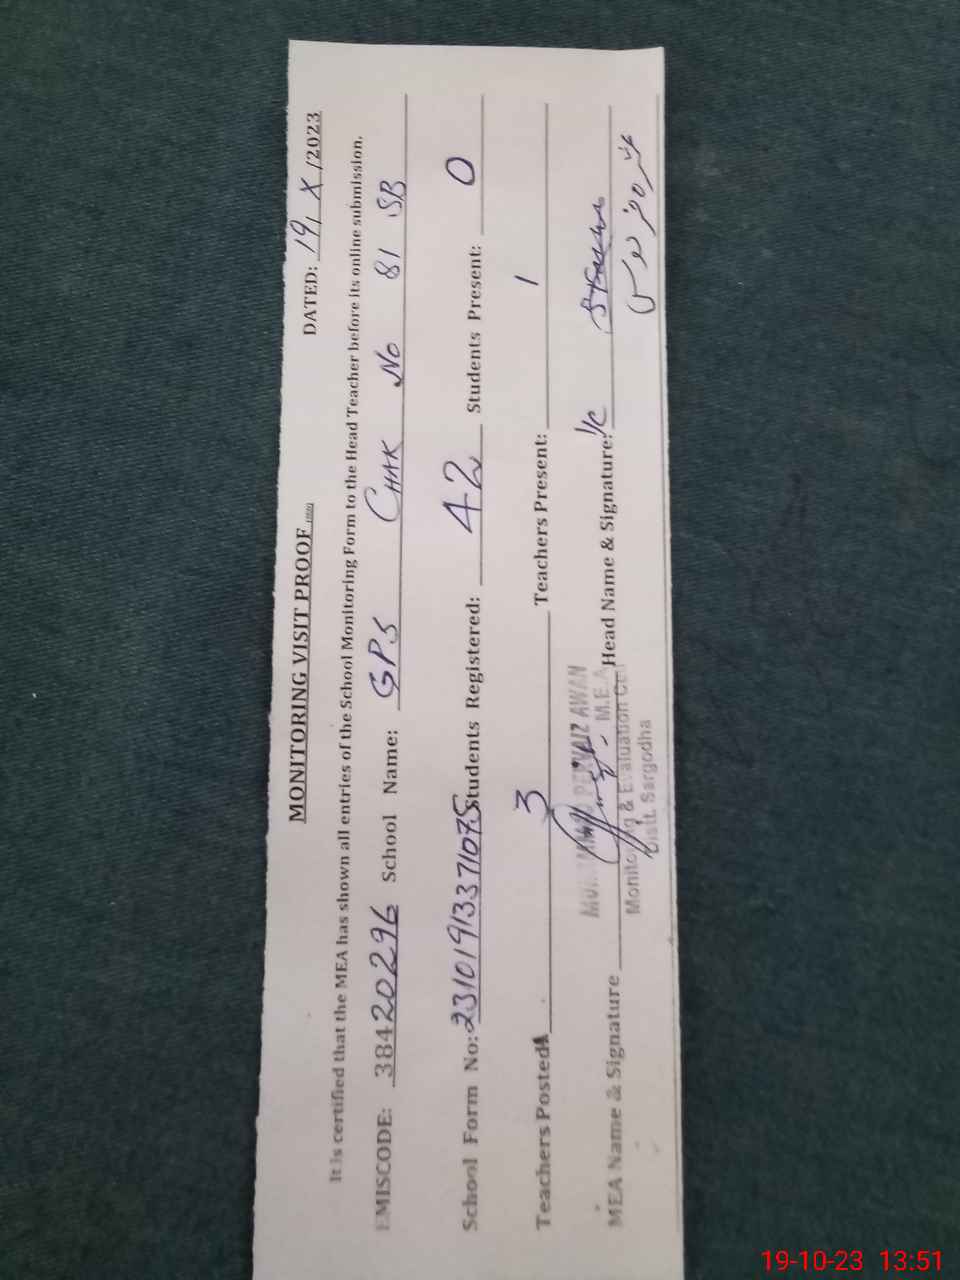 MONITORING VISIT PROOF
DATED: 19/ X /2023
It is certified that the MEA has shown all entries of the School Monitoring Form to the Head Teacher before its online submission.
EMISCODE: 38420296 School Name: GPS CHAK NO 81 SB
School Form No: 231019133371075 Students Registered: 42 Students Present: 0
Teachers Posted: 3 Teachers Present: 1
MEA Name & Signature Head Name & Signature: I/C
MUHAMMAD PERVAIZ AWAN
M.E.A
Monitoring & Evaluation Cell
Distt. Sargodha
19-10-23 13:51